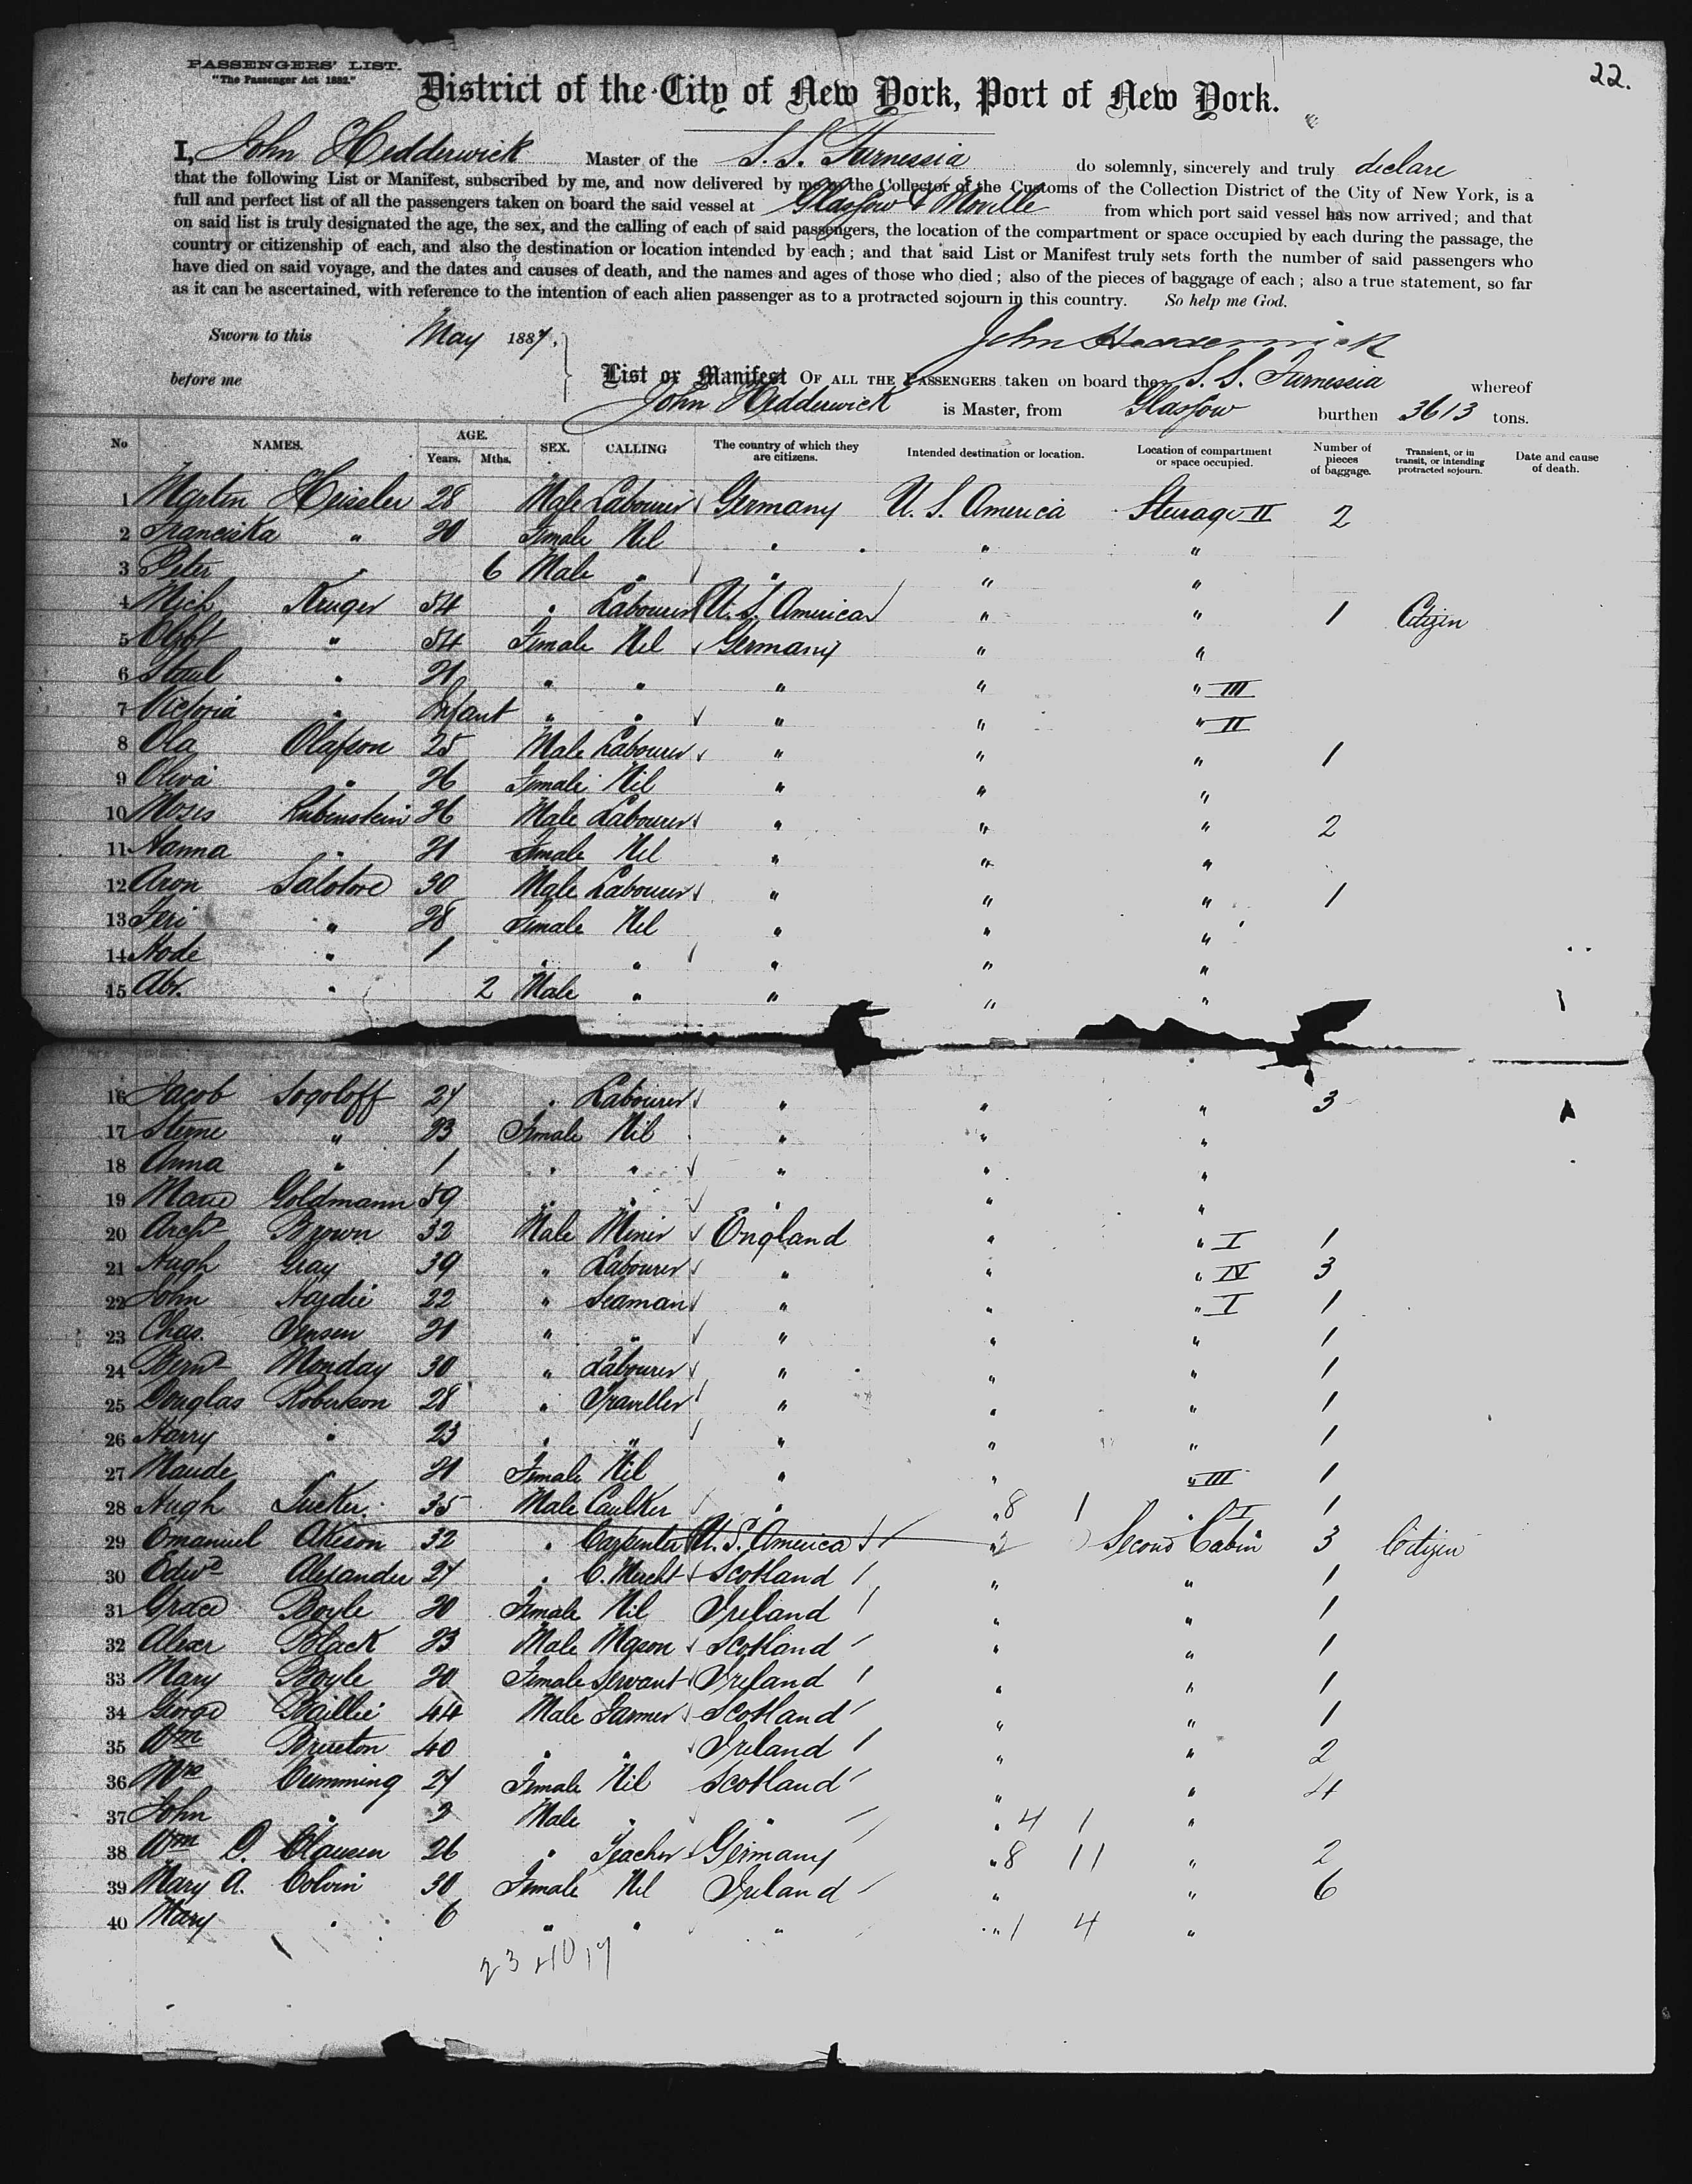 22.
PASSENGERS' LIST.
"The Passenger Act 1882."
District of the City of New York, Port of New York.
I, John Hedderwick Master of the S. S. Furnessia do solemnly, sincerely and truly declare
that the following List or Manifest, subscribed by me, and now delivered by me to the Collector of the Customs of the Collection District of the City of New York, is a
full and perfect list of all the passengers taken on board the said vessel at Glasgow & Moville from which port said vessel has now arrived; and that
on said list is truly designated the age, the sex, and the calling of each of said passengers, the location of the compartment or space occupied by each during the passage, the
country or citizenship of each, and also the destination or location intended by each; and that said List or Manifest truly sets forth the number of said passengers who
have died on said voyage, and the dates and causes of death, and the names and ages of those who died; also of the pieces of baggage of each; also a true statement, so far
as it can be ascertained, with reference to the intention of each alien passenger as to a protracted sojourn in this country. So help me God.
Sworn to this May 1887, John Hedderwick
before me List or Manifest OF ALL THE PASSENGERS taken on board the S. S. Furnessia whereof
John Hedderwick is Master, from Glasgow burthen 3613 tons.
No NAMES. AGE. Years. Mths. SEX. CALLING The country of which they are citizens. Intended destination or location. Location of compartment or space occupied. Number of pieces of baggage. Transient, or in transit, or intending protracted sojourn. Date and cause of death.
1 Martin Heissler 28 Male Labourer Germany U. S. America Sturage II 2
2 Franciska " 20 Female Nil " " "
3 Peter " 6 Male " " " "
4 Mich Kruger 54 " Labourer U. S. America " " 1 Citizen
5 " 54 Female Nil Germany " "
6 " 21 " " " " " III
7 Victoria " Infant " " " " " II
8 Ola Olafson 25 Male Labourer " " " 1
9 Oliva " 26 Female Nil " " "
10 Moses Rubenstein 26 Male Labourer " " " 2
11 Hanna " 21 Female Nil " " "
12 Aron Salotore 30 Male Labourer " " " 1
13 Feri " 28 Female Nil " " "
14 Hode " 1 " " " " "
15 Abr. " 2 Male " " " "
16 Jacob Sogoloff 24 " Labourer " " " 3
17 Sterne " 23 Female Nil " " "
18 Anna " 1 " " " " "
19 Marie Goldmann 59 " " " " "
20 Archd Brown 32 Male Miner England " " I 1
21 Hugh Gray 39 " Labourer " " " IV 3
22 John Hardie 22 " Seaman " " " I 1
23 Chas. Jensen 21 " " " " " 1
24 Bernd Monday 30 " Labourer " " " 1
25 Douglas Roberson 28 " Traveller " " " 1
26 Harry " 23 " " " " " 1
27 Maude " 21 Female Nil " " " III 1
28 Hugh Tucker 35 Male Caulker " " 8 1 " I 1
29 Emanuel Akeson 32 " Carpenter U. S. America " 2 Second Cabin 3 Citizen
30 Edwd Alexander 24 " C. Mercht Scotland " " 1
31 Grace Boyle 20 Female Nil Ireland " " 1
32 Alexr Black 23 Male Mason Scotland " " 1
33 Mary Boyle 20 Female Servant Ireland " " 1
34 George Baillie 44 Male Farmer Scotland " " 1
35 Wm Brueton 40 " " Ireland " " 2
36 Mrs Cumming 24 Female Nil Scotland " " 4
37 John " 2 Male " " " 4 1 "
38 Wm D. Clausen 26 " Teacher Germany " 8 11 " 2
39 Mary A. Colvin 30 Female Nil Ireland " " 6
40 Mary " 6 " " " " 1 4 "
23 17